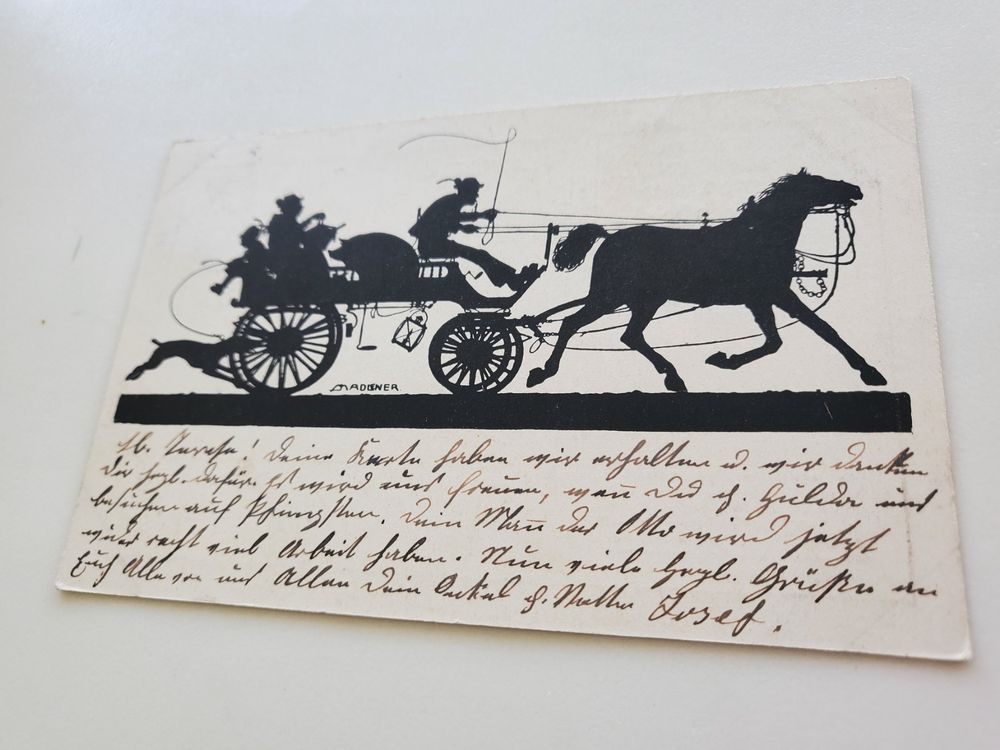 MADDNER.
lb. Therese! Deine Karte haben wir erhalten u. wir danken
Dir herzl. dafür. Es wird uns freuen, wenn Du d. Hulda uns
besuchen auf Pfingsten. Dein Mann der Otto wird jetzt
wieder recht viel Arbeit haben. Nun viele herzl. Grüße an
Euch Alle von uns Allen Dein Onkel Josef.